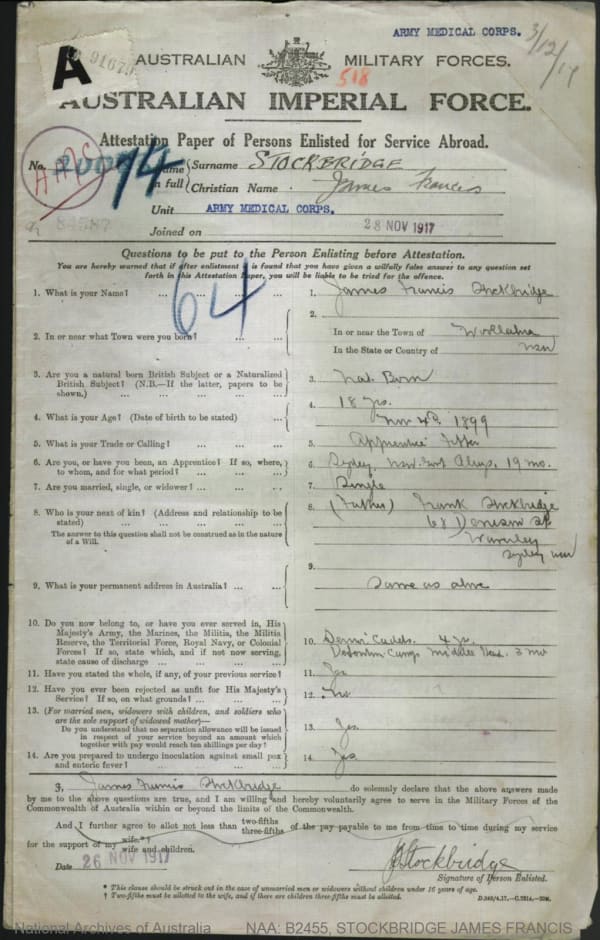 ARMY MEDICAL CORPS.
3/12/17
A
91679
AUSTRALIAN MILITARY FORCES.
518
AUSTRALIAN IMPERIAL FORCE.
Attestation Paper of Persons Enlisted for Service Abroad.
No. 14 Name in full Surname STOCKBRIDGE
AAMC
Christian Name James Francis
Unit ARMY MEDICAL CORPS.
84587
Joined on 28 NOV 1917
Questions to be put to the Person Enlisting before Attestation.
You are hereby warned that if after enlistment it is found that you have given a wilfully false answer to any question set
forth in this Attestation Paper, you will be liable to be tried for the offence.
64
1. What is your Name? ... ... ... ... 1. James Francis Stockbridge
2. In or near what Town were you born? ... ... 2. In or near the Town of Woollahra
In the State or Country of NSW
3. Are you a natural born British Subject or a Naturalized
British Subject? (N.B.—If the latter, papers to be
shown.) ... ... ... ... 3. Nat. Born
4. What is your Age? (Date of birth to be stated) ... 4. 18 yrs.
Nov 4th 1899
5. What is your Trade or Calling? ... ... ... 5. Apprentice Fitter
6. Are you, or have you been, an Apprentice? If so, where,
to whom, and for what period? ... ... ... 6. Sydney, NSW. Govt 19 mo.
7. Are you married, single, or widower? ... ... ... 7. Single
8. Who is your next of kin? (Address and relationship to be
stated) ... ... ... ... 8. (Father) Frank Stockbridge
The answer to this question shall not be construed as in the nature
of a Will.
68 Denison St
Waverley
Sydney NSW
9. What is your permanent address in Australia? ... ... 9. Same as above
10. Do you now belong to, or have you ever served in, His
Majesty's Army, the Marines, the Militia, the Militia
Reserve, the Territorial Force, Royal Navy, or Colonial
Forces? If so, state which, and if not now serving,
state cause of discharge ... ... ... 10. Senior Cadets. 4 yrs.
Camp Middle Head. 3 mo
11. Have you stated the whole, if any, of your previous service? 11. Yes
12. Have you ever been rejected as unfit for His Majesty's
Service? If so, on what grounds? ... ... ... 12. No
13. (For married men, widowers with children, and soldiers who
are the sole support of widowed mother)—
Do you understand that no separation allowance will be issued
in respect of your service beyond an amount which
together with pay would reach ten shillings per day? 13. Yes.
14. Are you prepared to undergo inoculation against small pox
and enteric fever? ... ... ... ... 14. Yes.
I, James Francis Stockbridge do solemnly declare that the above answers made
by me to the above questions are true, and I am willing and hereby voluntarily agree to serve in the Military Forces of the
Commonwealth of Australia within or beyond the limits of the Commonwealth.
And I further agree to allot not less than two-fifths three-fifths of the pay payable to me from time to time during my service
for the support of my wife.*† wife and children.
Date 26 NOV 1917
JStockbridge
Signature of Person Enlisted.
* This clause should be struck out in the case of unmarried men or widowers without children under 16 years of age.
† Two-fifths must be allotted to the wife, and if there are children three-fifths must be allotted.
National Archives of Australia NAA: B2455, STOCKBRIDGE JAMES FRANCIS